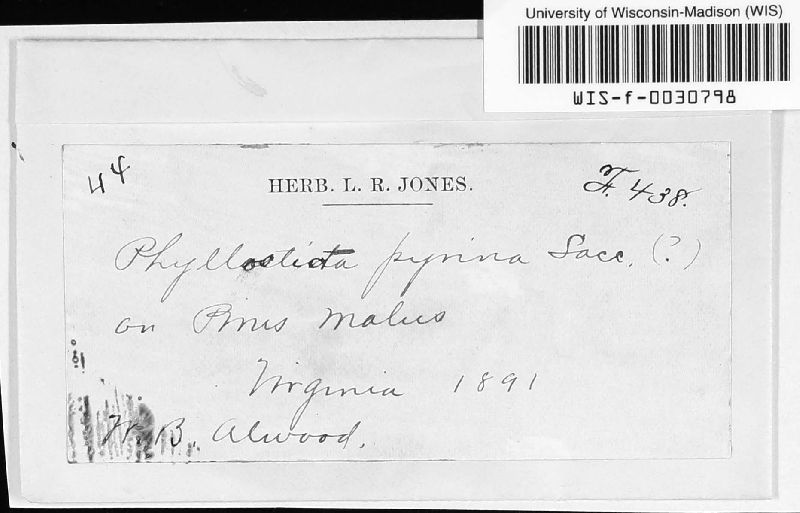 University of Wisconsin-Madison (WIS)
WIS-f-0030798
44
HERB. L. R. JONES.
F. 438.
Phyllosticta pyrina Sacc. (?)
on Pirus Malus
Virginia 1891
W. B. Alwood.